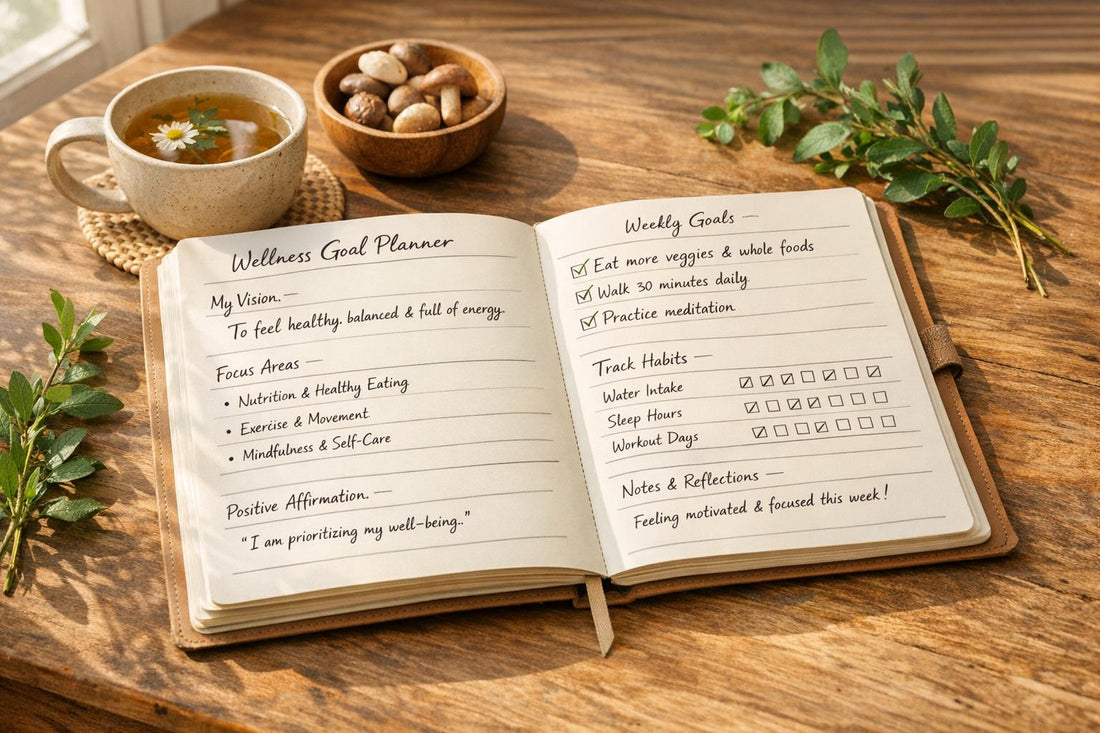 Wellness Goal Planner
My Vision. —
To feel healthy. balanced & full of energy.
Focus Areas —
• Nutrition & Healthy Eating
• Exercise & Movement
• Mindfulness & Self-Care
Positive Affirmation. —
“I am prioritizing my well-being..”
Weekly Goals —
☑ Eat more veggies & whole foods
☑ Walk 30 minutes daily
☑ Practice meditation
Track Habits —
Water Intake ☑ ☑ ☑ ☐ ☑ ☐ ☑
Sleep Hours ☑ ☐ ☑ ☑ ☐ ☐ ☐
Workout Days ☑ ☐ ☐ ☑ ☐ ☐ ☐
Notes & Reflections —
Feeling motivated & focused this week!